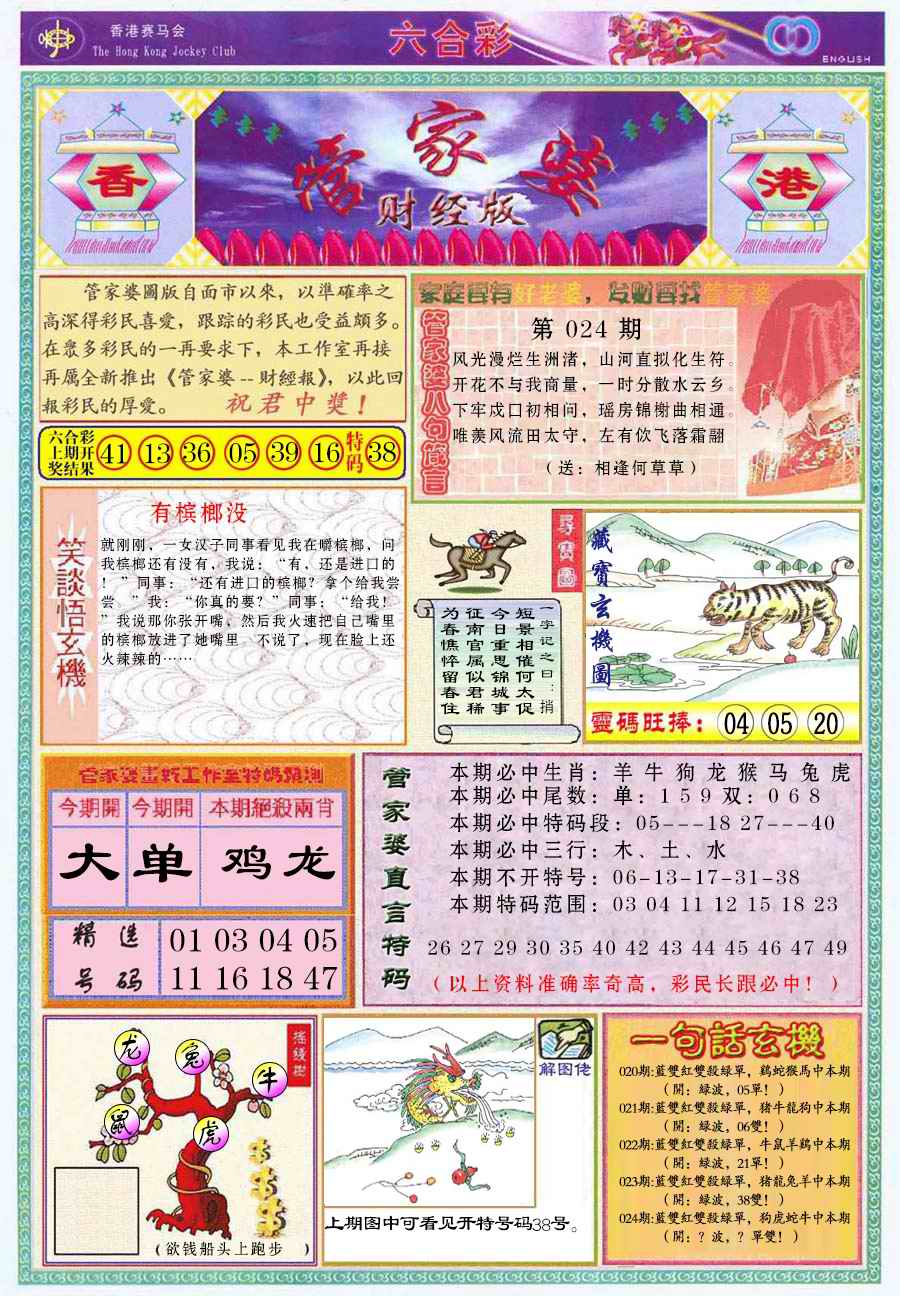 香港赛马会
The Hong Kong Jockey Club
六合彩
ENGLISH
香
管家婆
财经版
港
管家婆圖版自面市以來，以準確率之
高深得彩民喜愛，跟踪的彩民也受益頗多。
在眾多彩民的一再要求下，本工作室再接
再厲全新推出《管家婆--財經報》，以此回
報彩民的厚愛。 祝君中獎！
六合彩
上期开
奖结果
41 13 36 05 39 16 特码 38
家庭要有好老婆，发财要找管家婆
管家婆八句箴言
第 024 期
风光漫烂生洲渚，山河直拟化生符。
开花不与我商量，一时分散水云乡。
下牢戍口初相问，瑶房锦榭曲相通。
唯羡风流田太守，左有佽飞落霜翮
（送：相逢何草草）
笑談悟玄機
有槟榔没
就刚刚，一女汉子同事看见我在嚼槟榔，问
我槟榔还有没有，我说：“有，还是进口的
！”同事：“还有进口的槟榔？拿个给我尝
尝。”我：“你真的要？”同事：“给我！
”我说那你张开嘴，然后我火速把自己嘴里
的槟榔放进了她嘴里…不说了，现在脸上还
火辣辣的……
一字记之曰：捎
短景相催何太促
今日重思锦城事
征南官属似君稀
为春憔悴留春住
尋寶圖
藏寶玄機圖
靈碼旺捧：04 05 20
管家婆畫彩工作室特碼預測
今期開 今期開 本期絕殺兩肖
大 单 鸡龙
精选
号码
01 03 04 05
11 16 18 47
管家婆直言特码
本期必中生肖：羊牛狗龙猴马兔虎
本期必中尾数：单：159双：068
本期必中特码段：05---18 27---40
本期必中三行：木、土、水
本期不开特号：06-13-17-31-38
本期特码范围：03 04 11 12 15 18 23
26 27 29 30 35 40 42 43 44 45 46 47 49
（以上资料准确率奇高，彩民长跟必中！）
摇錢樹
龙
兔
牛
鼠
虎
（欲钱船头上跑步 ）
解图佬
上期图中可看见开特号码38号。
一句話玄機
020期:藍雙紅雙殺绿單，鷄蛇猴馬中本期
（開：緑波，05單！）
021期:藍雙紅雙殺绿單，猪牛龍狗中本期
（開：緑波，06雙！）
022期:藍雙紅雙殺绿單，牛鼠羊鷄中本期
（開：緑波，21單！）
023期:藍雙紅雙殺绿單，猪龍兔羊中本期
（開：緑波，38雙！）
024期:藍雙紅雙殺绿單，狗虎蛇牛中本期
（開：？波，？單雙！）